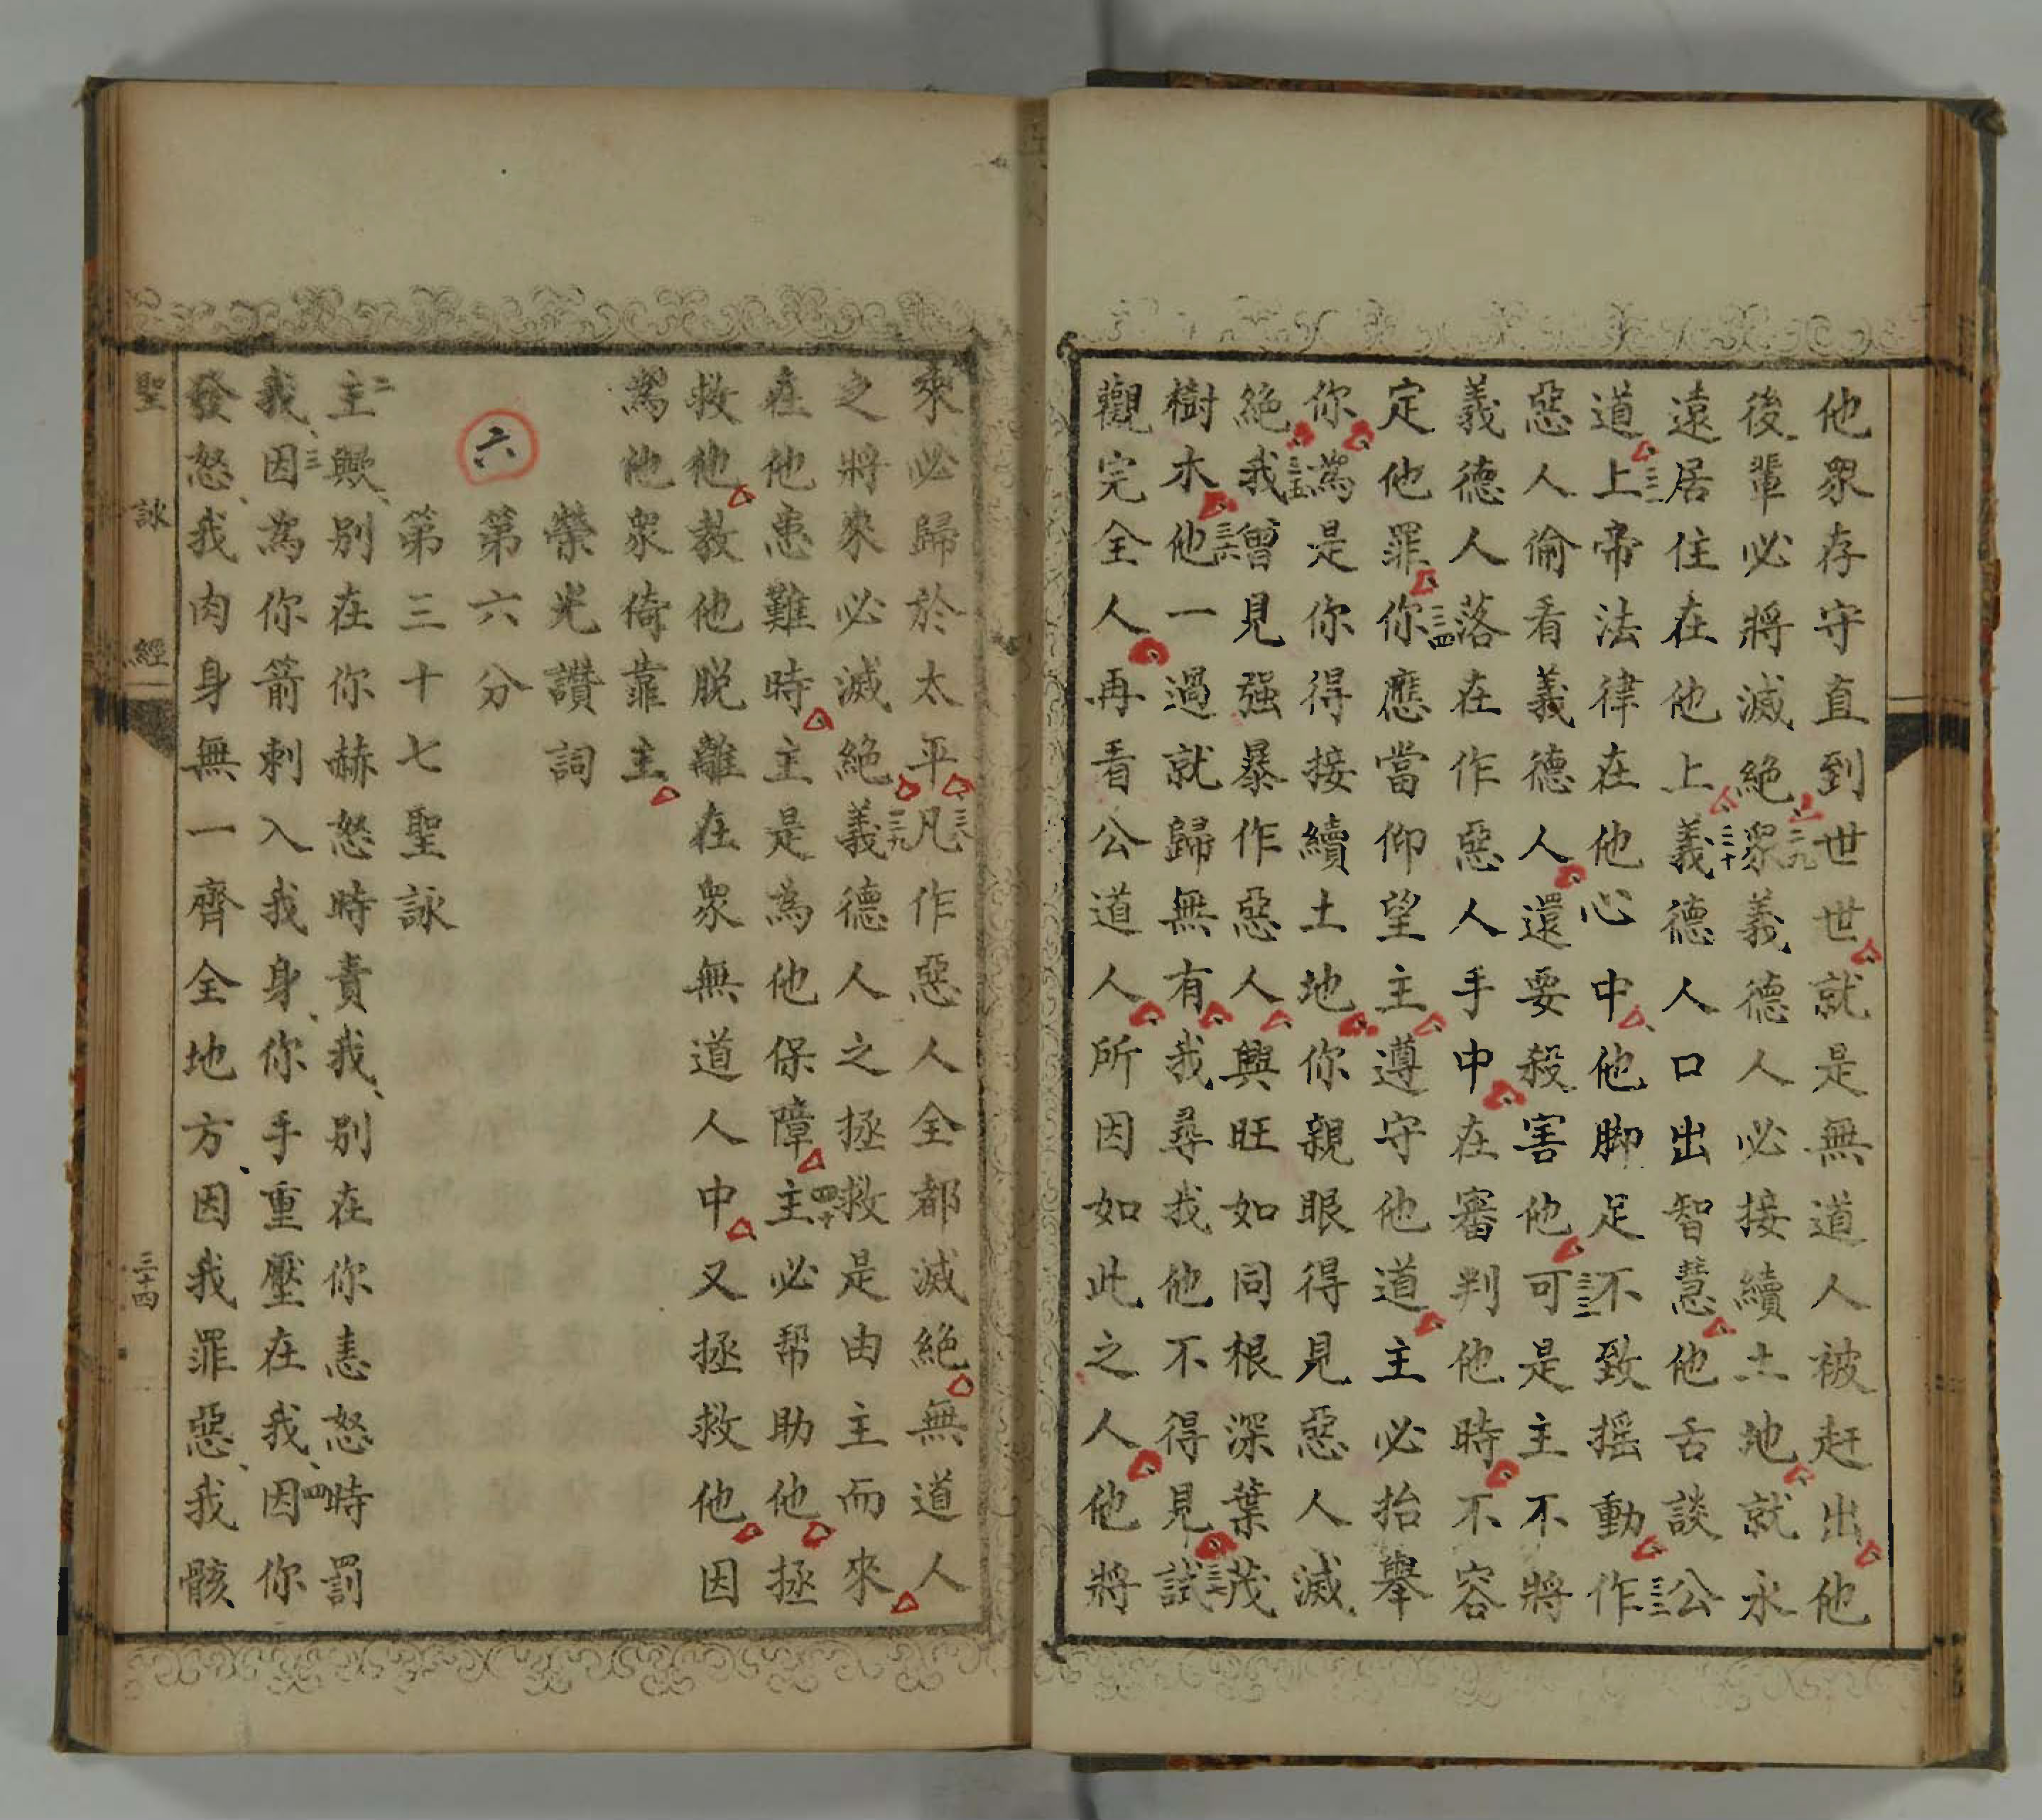 他衆存守直到世世就是無道人被赶出他
後輩必將滅絕二九衆義德人必接續土地就永
遠居住在他上三十義德人口出智慧他舌談公
道三一上帝法律在他心中他脚足不致摇動三二作
惡人倫看義德人還要殺害他三三可是主不將
義德人落在作惡人手中在審判他時不容
定他罪三四你應當仰望主遵守他道主必抬舉
你為是你得接續土地你親眼得見惡人滅
絕三五我曾見强暴作惡人興旺如同根深葉茂
樹木三六他一過就歸無有我尋找他不得見三七試
觀完全人再看公道人所因如此之人他將
來必歸於太平三八凡作惡人全都滅絕無道人
之將來必滅絕三九義德人之拯救是由主而來
在他患難時主是為他保障四十主必帮助他拯
救他教他脱離在衆無道人中又拯救他因
為他衆倚靠主
榮光讃詞
六 第六分
第三十七聖詠
二主歟別在你赫怒時責我別在你恚怒時罰
我三因為你箭刺入我身你手重壓在我四因你
發怒我肉身無一齊全地方因我罪惡我骸
聖詠經 三十四